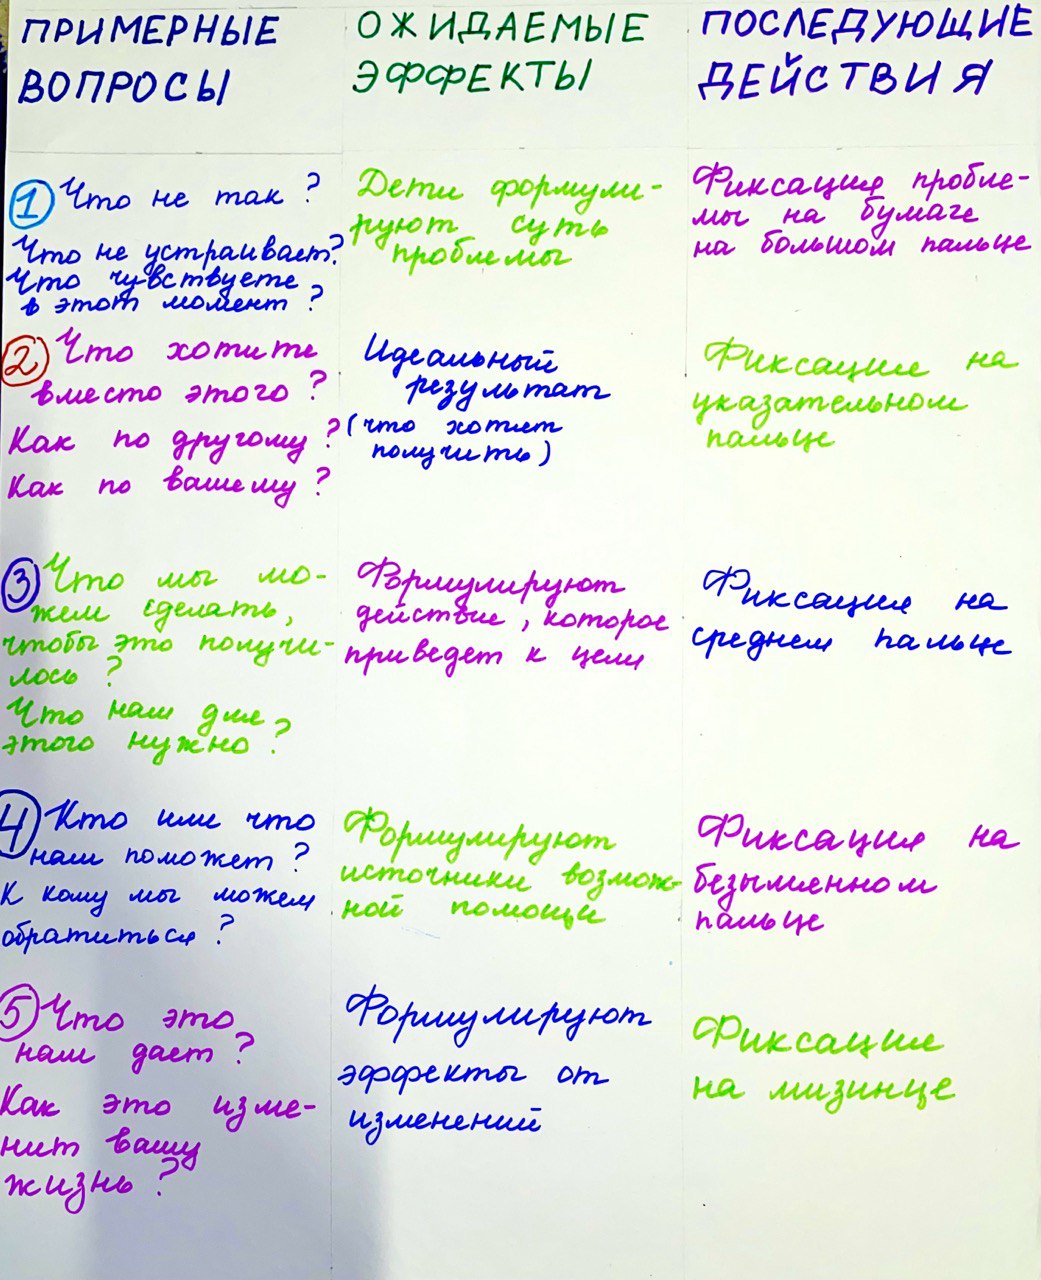 ПРИМЕРНЫЕ
ВОПРОСЫ
ОЖИДАЕМЫЕ
ЭФФЕКТЫ
ПОСЛЕДУЮЩИЕ
ДЕЙСТВИЯ
1 Что не так?
Что не устраивает?
Что чувствуете
в этот момент?
Дети формули-
руют суть
проблемы
Фиксация пробле-
мы на бумаге
на большом пальце
2 Что хотите
вместо этого?
Как по другому?
Как по вашему?
Идеальный
результат
(что хотят
получить)
Фиксация на
указательном
пальце
3 Что мы мо-
жем сделать,
чтобы это получи-
лось?
Что нам для
этого нужно?
Формулируют
действие, которое
приведет к цели
Фиксация на
среднем пальце
4 Кто или что
нам поможет?
К кому мы можем
обратиться?
Формулируют
источники возмож-
ной помощи
Фиксация на
безыменном
пальце
5 Что это
нам дает?
Как это изме-
нит вашу
жизнь?
Формулируют
эффекты от
изменений
Фиксация
на мизинце